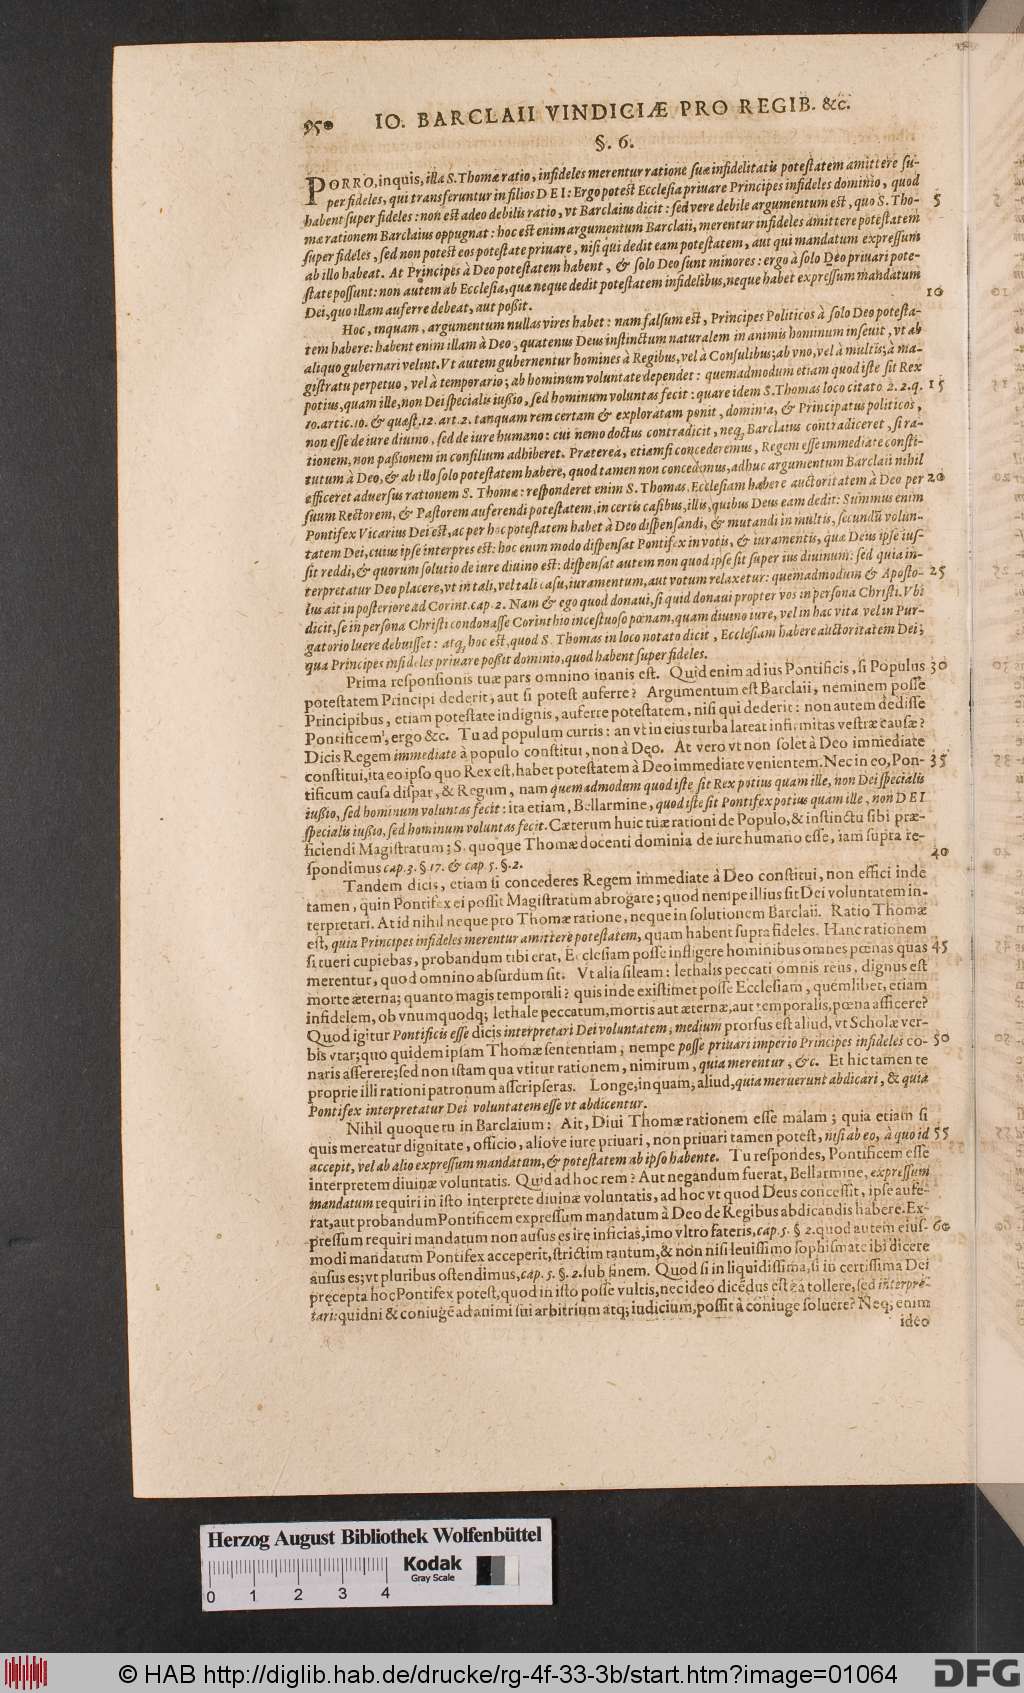 950 IO. BARCLAII VINDICIÆ PRO REGIB. &c.
§. 6.
PORRO, inquis, illa S. Thomæ ratio, infideles merentur ratione suæ infidelitatis potestatem amittere su-
per fideles, qui transferuntur in filios DEI: Ergo potest Ecclesia priuare Principes infideles dominio, quod
habent super fideles: non est adeo debilis ratio, vt Barclaius dicit: sed vere debile argumentum est, quo S. Tho- 5
mæ rationem Barclaius oppugnat: hoc est enim argumentum Barclaii, merentur infideles amittere potestatem
super fideles, sed non potest eos potestate priuare, nisi qui dedit eam potestatem, aut qui mandatum expressum
ab illo habeat. At Principes à Deo potestatem habent, & solo Deo sunt minores: ergo à solo Deo priuari pote-
state possunt: non autem ab Ecclesia, quæ neque dedit potestatem infidelibus, neque habet expressum mandatum
Dei, quo illam auferre debeat, aut possit. 10
Hoc, inquam, argumentum nullas vires habet: nam falsum est, Principes Politicos à solo Deo potesta-
tem habere: habent enim illam à Deo, quatenus Deus instinctum naturalem in animis hominum inseuit, vt ab
aliquo gubernari velint. Vt autem gubernentur homines à Regibus, vel à Consulibus; ab vno, vel à multis; à ma-
gistratu perpetuo, vel à temporario; ab hominum voluntate dependet: quemadmodum etiam quod iste sit Rex
potius, quam ille, non Dei specialis iussio, sed hominum voluntas fecit: quare idem S. Thomas loco citato 2. 2. q. 15
10. artic. 10. & quæst. 12. art. 2. tanquam rem certam & exploratam ponit, dominia, & Principatus politicos,
non esse de iure diuino, sed de iure humano: cui nemo doctus contradicit, neq; Barclaius contradiceret, si ra-
tionem, non passionem in consilium adhiberet. Præterea, etiamsi concederemus, Regem esse immediate consti-
tutum à Deo, & ab illo solo potestatem habere, quod tamen non concedimus, adhuc argumentum Barclaii nihil
efficeret aduersus rationem S. Thomæ: responderet enim S. Thomas, Ecclesiam habere auctoritatem à Deo per 20
suum Rectorem, & Pastorem auferendi potestatem, in certis casibus, illis, quibus Deus eam dedit: Summus enim
Pontifex Vicarius Dei est, ac per hoc potestatem habet à Deo dispensandi, & mutandi in multis, secundū volun-
tatem Dei, cuius ipse interpres est: hoc enim modo dispensat Pontifex in votis, & iuramentis, quæ Deus ipse ius-
sit reddi, & quorum solutio de iure diuino est: dispensat autem non quod ipse sit super ius diuinum: sed quia in-
terpretatur Deo placere, vt in tali, vel tali casu, iuramentum, aut votum relaxetur: quemadmodum & Aposto- 25
lus ait in posteriore ad Corint. cap. 2. Nam & ego quod donaui, si quid donaui propter vos in persona Christi. Vbi
dicit, se in persona Christi condonasse Corinthio incestuoso pœnam, quam diuino iure, vel in hac vita vel in Pur-
gatorio luere debuisset: atq; hoc est, quod S. Thomas in loco notato dicit, Ecclesiam habere auctoritatem Dei;
qua Principes infideles priuare possit dominio, quod habent super fideles.
Prima responsionis tuæ pars omnino inanis est. Quid enim ad ius Pontificis, si Populus 30
potestatem Principi dederit; aut si potest auferre? Argumentum est Barclaii, neminem posse
Principibus, etiam potestate indignis, auferre potestatem, nisi qui dederit: non autem dedisse
Pontificem, ergo &c. Tu ad populum curris: an vt in eius turba lateat infirmitas vestræ causæ?
Dicis Regem immediate à populo constitui, non à Deo. At vero vt non solet à Deo immediate
constitui, ita eo ipso quo Rex est, habet potestatem à Deo immediate venientem. Nec in eo, Pon- 35
tificum causa dispar, & Regum, nam quemadmodum quod iste sit Rex potius quam ille, non Dei specialis
iussio, sed hominum voluntas fecit: ita etiam, Bellarmine, quod iste sit Pontifex potius quam ille, non DEI
specialis iussio, sed hominum voluntas fecit. Cæterum huic tuæ rationi de Populo, & instinctu sibi præ-
ficiendi Magistratum; S. quoque Thomæ docenti dominia de iure humano esse, iam supra re-
spondimus cap. 3. § 17. & cap. 5. §. 2. 40
Tandem dicis, etiam si concederes Regem immediate à Deo constitui, non effici inde
tamen, quin Pontifex ei possit Magistratum abrogare; quod nempe illius sit Dei voluntatem in-
terpretari. At id nihil neque pro Thomæ ratione, neque in solutionem Barclaii. Ratio Thomæ
est, quia Principes infideles merentur amittere potestatem, quam habent supra fideles. Hanc rationem
si tueri cupiebas, probandum tibi erat, Ecclesiam posse infligere hominibus omnes pœnas quas 45
merentur, quod omnino absurdum sit. Vt alia sileam: lethalis peccati omnis reus, dignus est
morte æterna; quanto magis temporali? quis inde existimet posse Ecclesiam, quemlibet, etiam
infidelem, ob vnumquodq; lethale peccatum, mortis aut æternæ, aut temporalis, pœna afficere?
Quod igitur Pontificis esse dicis interpretari Dei voluntatem, medium prorsus est aliud, vt Scholæ ver-
bis vtar; quo quidem ipsam Thomæ sententiam, nempe posse priuari imperio Principes infideles co- 50
naris asserere; sed non istam qua vtitur rationem, nimirum, quia merentur, &c. Et hic tamen te
proprie illi rationi patronum asscripseras. Longe, inquam, aliud, quia meruerunt abdicari, & quia
Pontifex interpretatur Dei voluntatem esse vt abdicentur.
Nihil quoque tu in Barclaium: Ait, Diui Thomæ rationem esse malam; quia etiam si
quis mereatur dignitate, officio, aliove iure priuari, non priuari tamen potest, nisi ab eo, à quo id 55
accepit, vel ab alio expressum mandatum, & potestatem ab ipso habente. Tu respondes, Pontificem esse
interpretem diuinæ voluntatis. Quid ad hoc rem? Aut negandum fuerat, Bellarmine, expressum
mandatum requiri in isto interprete diuinæ voluntatis, ad hoc vt quod Deus concessit, ipse aufe-
rat, aut probandum Pontificem expressum mandatum à Deo de Regibus abdicandis habere. Ex-
pressum requiri mandatum non ausus es ire inficias, imo vltro fateris, cap. 5. § 2. quod autem eius- 60
modi mandatum Pontifex acceperit, strictim tantum, & non nisi leuissimo sophismate ibi dicere
ausus es; vt pluribus ostendimus, cap. 5. §. 2. sub finem. Quod si in liquidissima, si in certissima Dei
præcepta hoc Pontifex potest, quod in isto posse vultis, nec ideo dicēdus est ea tollere, sed interpre-
tari: quidni & coniugē ad animi sui arbitrium atq; iudicium, possit à coniuge soluere? Neq; enim
ideo
Herzog August Bibliothek Wolfenbüttel
Kodak
Gray Scale
0 1 2 3 4
© HAB http://diglib.hab.de/drucke/rg-4f-33-3b/start.htm?image=01064
DFG